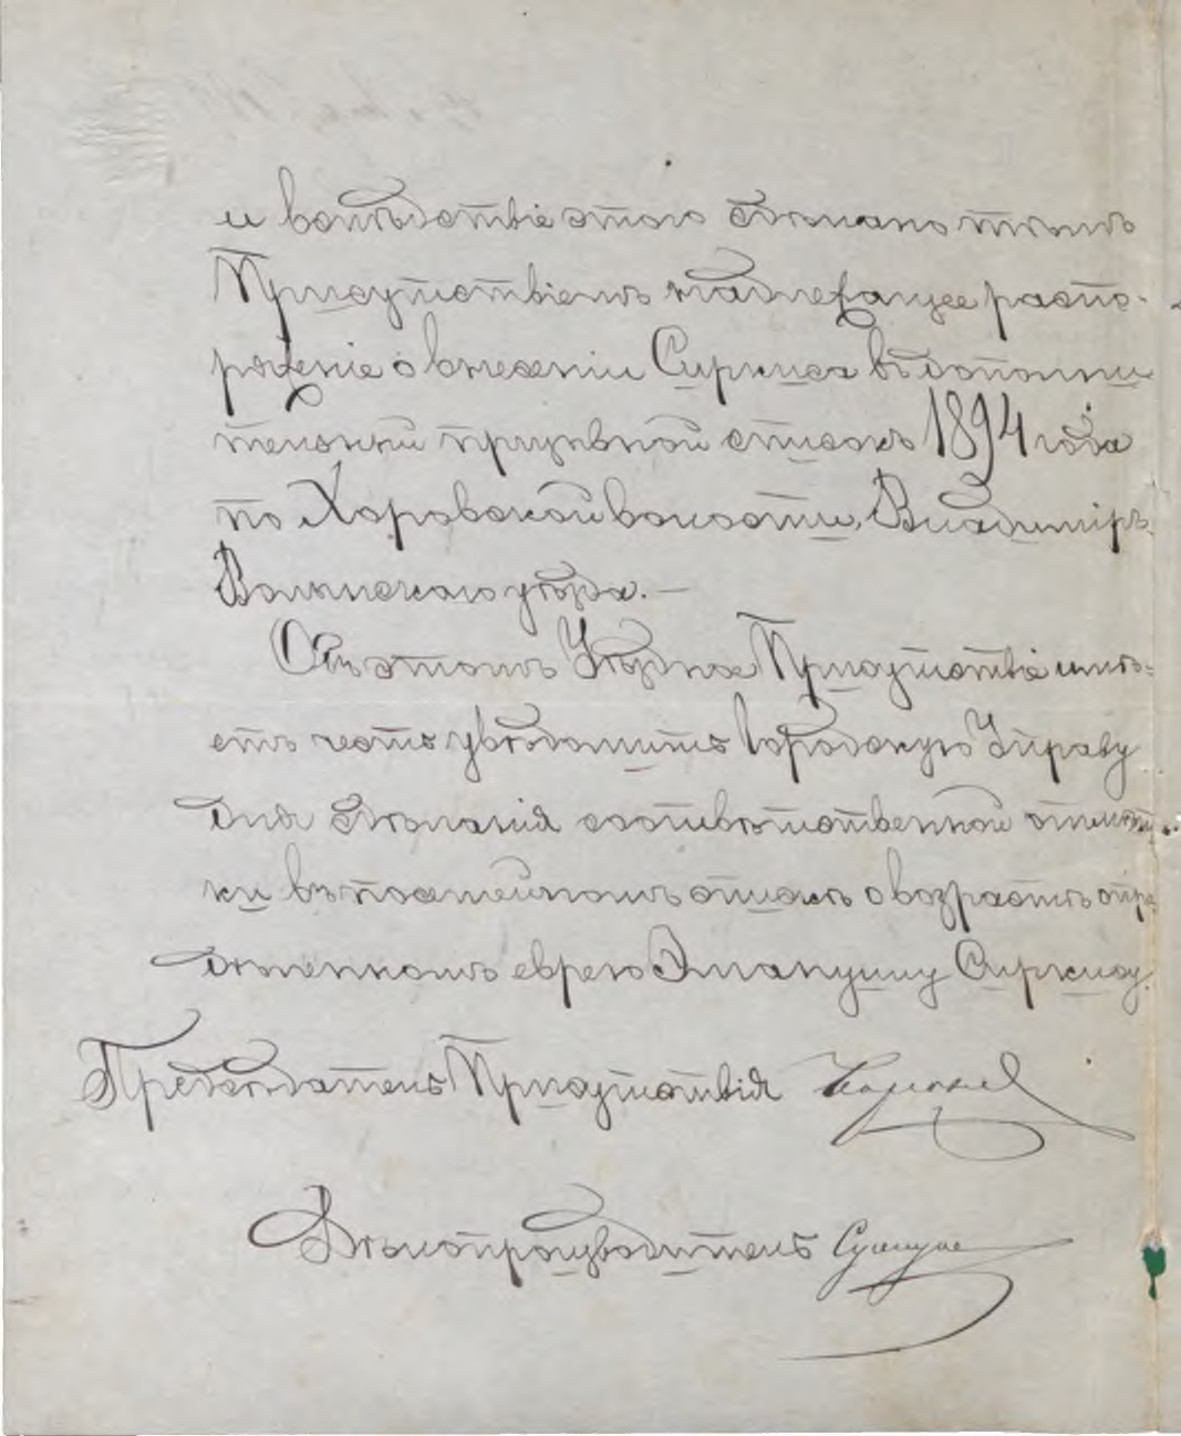 и вслѣдствіе этого сдѣлано тѣмъ
Присутствіемъ надлежащее распо-
ряженіе о внесеніи Сиркиса въ дополни
тельный призывной списокъ 1894 года
по Хоровской волости, Владимір
Волынскаго уѣзда. —
Объ этомъ Уѣздное Присутствіе имѣ=
етъ честь увѣдомить Городскую Управу
для сдѣланія соотвѣтственной отмѣт
ки въ посемейномъ спискѣ о возрастѣ опре
дѣленномъ еврею Эмануилу Сиркису.
Предсѣдатель Присутствія
Дѣлопроизводитель